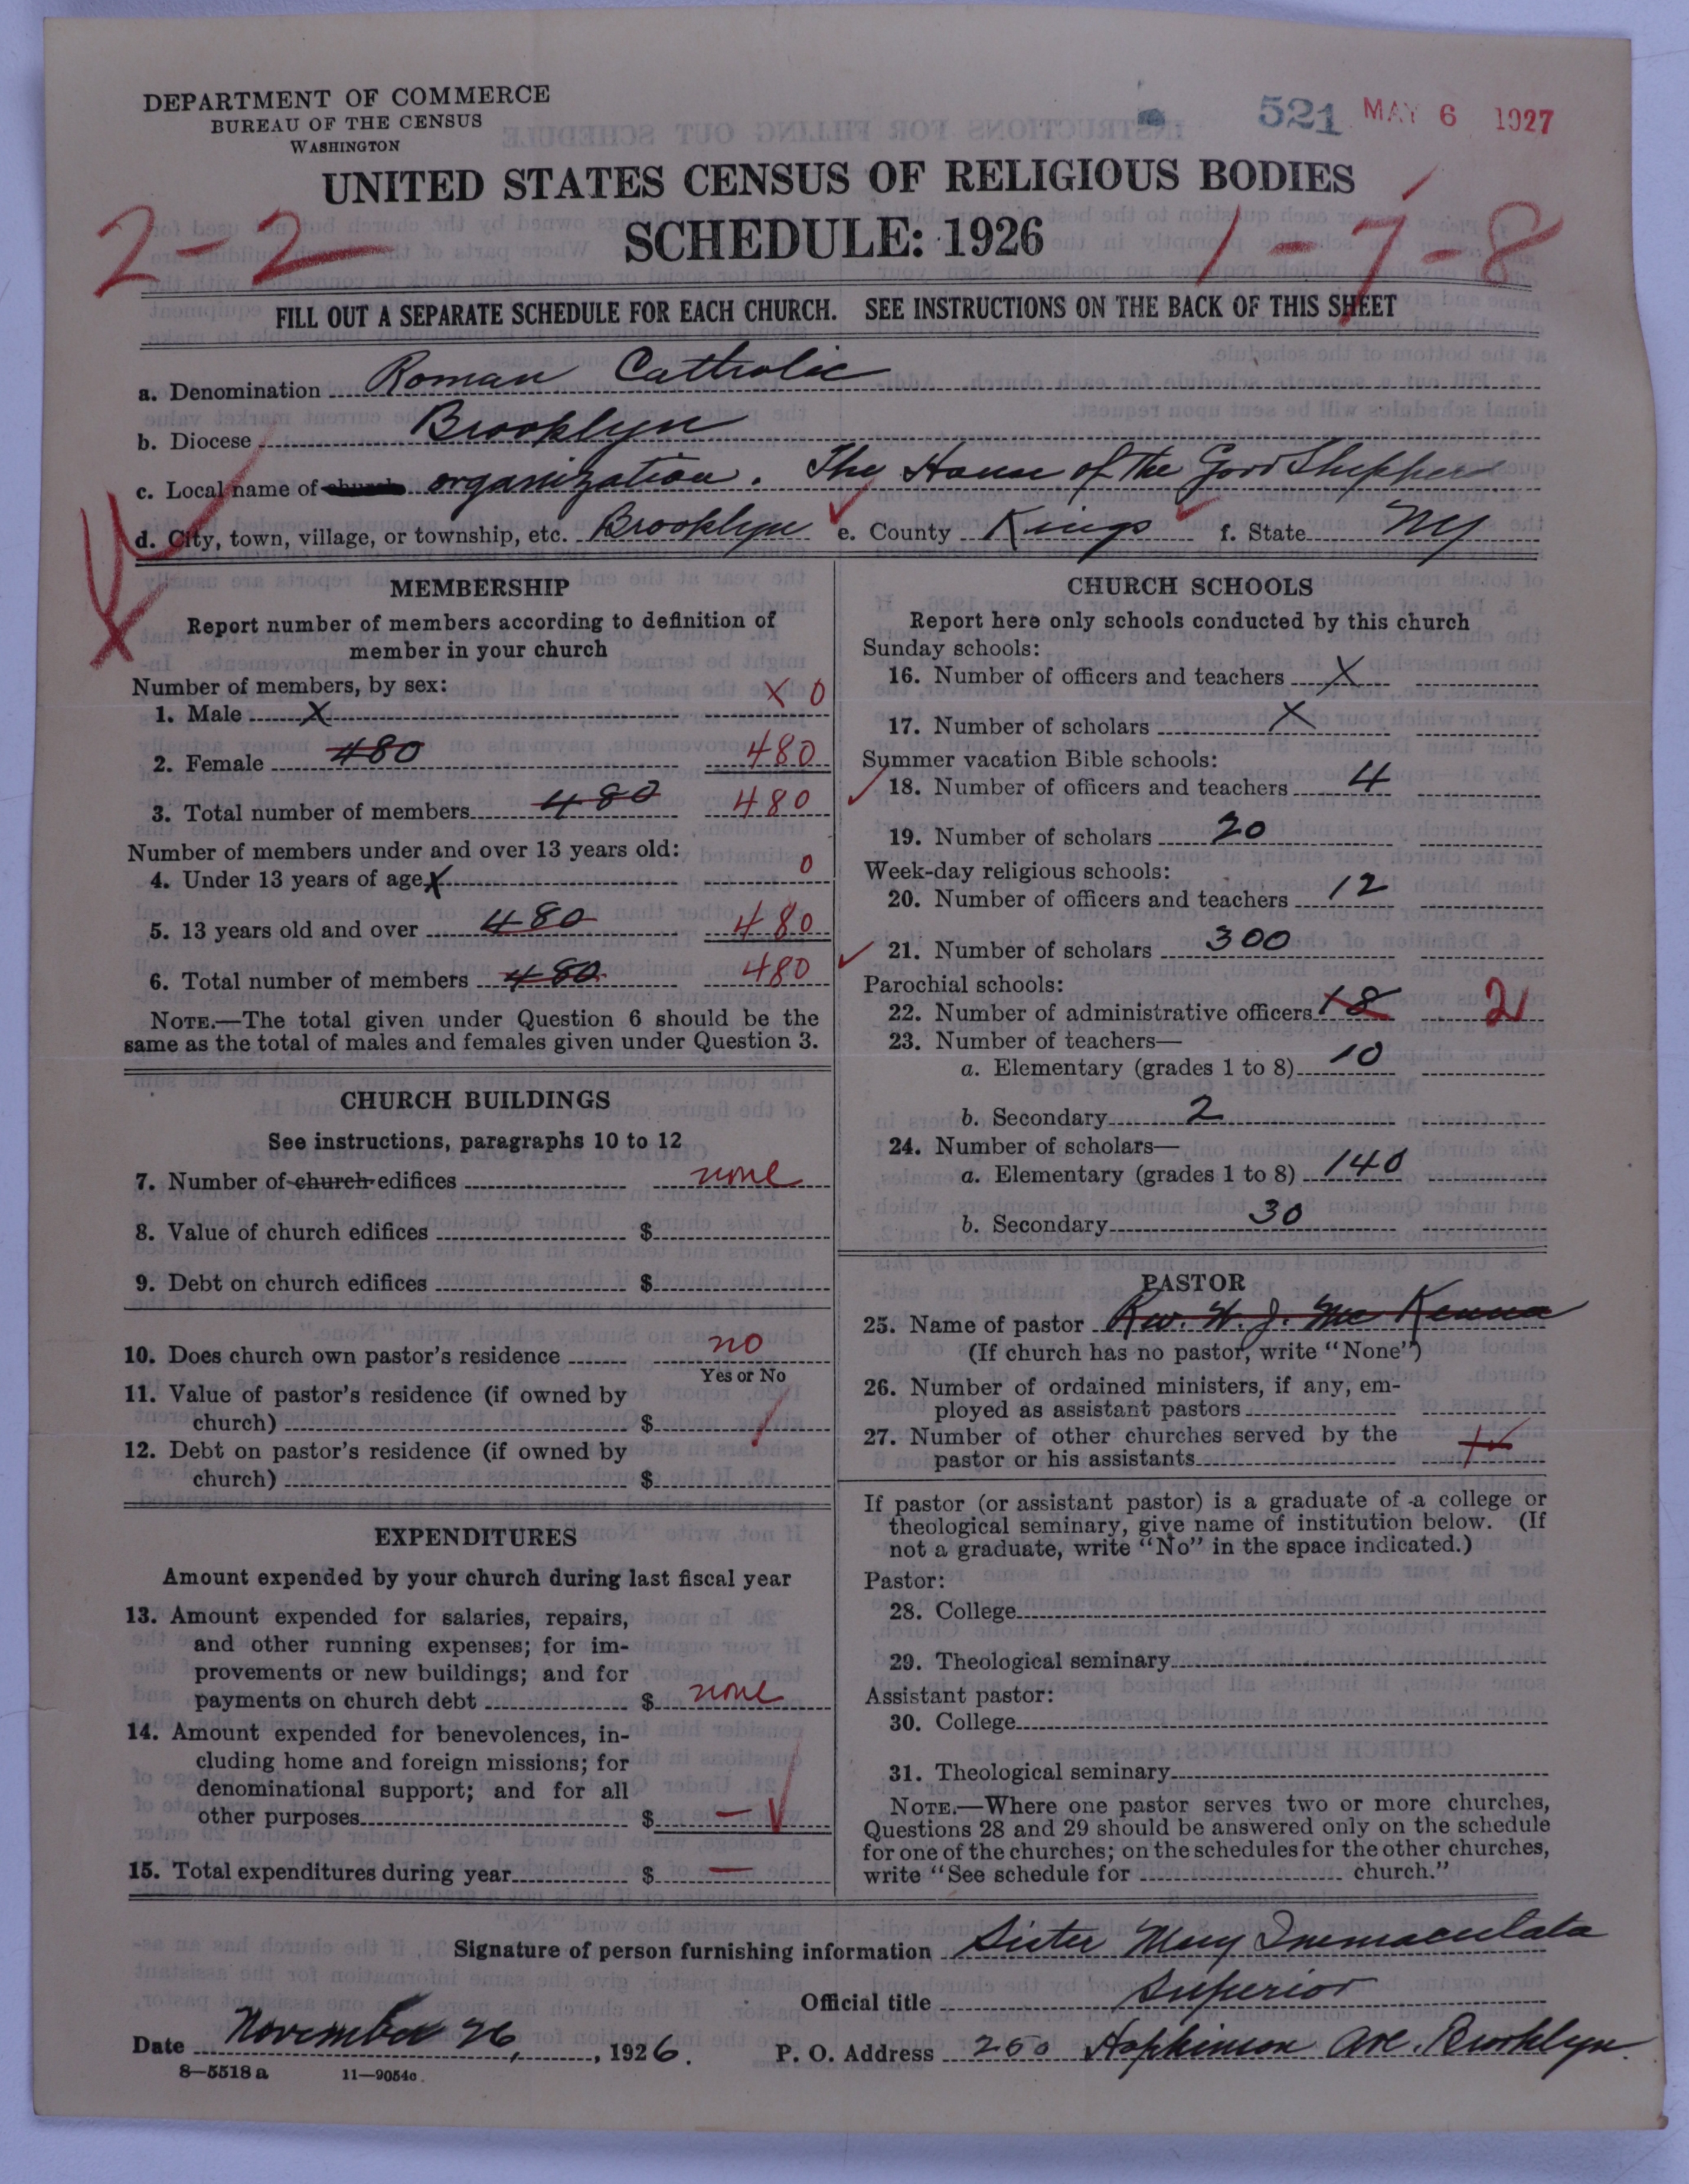 DEPARTMENT OF COMMERCE
BUREAU OF THE CENSUS
WASHINGTON
521 MAY 6 1927
UNITED STATES CENSUS OF RELIGIOUS BODIES
SCHEDULE: 1926
2-2 1-7-8
FILL OUT A SEPARATE SCHEDULE FOR EACH CHURCH. SEE INSTRUCTIONS ON THE BACK OF THIS SHEET
a. Denomination Roman Catholic
b. Diocese Brooklyn
c. Local name of church organization. The House of the Good Shepherd
d. City, town, village, or township, etc. Brooklyn e. County Kings f. State NY
MEMBERSHIP
Report number of members according to definition of
member in your church
Number of members, by sex:
1. Male X X 0
2. Female 480 480
3. Total number of members 480 480
Number of members under and over 13 years old:
4. Under 13 years of age X 0
5. 13 years old and over 480 480
6. Total number of members 480 480
NOTE.—The total given under Question 6 should be the
same as the total of males and females given under Question 3.
CHURCH BUILDINGS
See instructions, paragraphs 10 to 12
7. Number of church edifices none
8. Value of church edifices $
9. Debt on church edifices $
10. Does church own pastor's residence no
Yes or No
11. Value of pastor's residence (if owned by
church) $
12. Debt on pastor's residence (if owned by
church) $
EXPENDITURES
Amount expended by your church during last fiscal year
13. Amount expended for salaries, repairs,
and other running expenses; for im-
provements or new buildings; and for
payments on church debt $ none
14. Amount expended for benevolences, in-
cluding home and foreign missions; for
denominational support; and for all
other purposes $ —
15. Total expenditures during year $ —
CHURCH SCHOOLS
Report here only schools conducted by this church
Sunday schools:
16. Number of officers and teachers X
17. Number of scholars X
Summer vacation Bible schools:
18. Number of officers and teachers 4
19. Number of scholars 20
Week-day religious schools:
20. Number of officers and teachers 12
21. Number of scholars 300
Parochial schools:
22. Number of administrative officers 12 2
23. Number of teachers—
a. Elementary (grades 1 to 8) 10
b. Secondary 2
24. Number of scholars—
a. Elementary (grades 1 to 8) 140
b. Secondary 30
PASTOR
25. Name of pastor Rev. W. J. McKenna
(If church has no pastor, write "None")
26. Number of ordained ministers, if any, em-
ployed as assistant pastors
27. Number of other churches served by the
pastor or his assistants
If pastor (or assistant pastor) is a graduate of a college or
theological seminary, give name of institution below. (If
not a graduate, write "No" in the space indicated.)
Pastor:
28. College
29. Theological seminary
Assistant pastor:
30. College
31. Theological seminary
NOTE.—Where one pastor serves two or more churches,
Questions 28 and 29 should be answered only on the schedule
for one of the churches; on the schedules for the other churches,
write "See schedule for church."
Signature of person furnishing information Sister Mary Immaculata
Official title Superior
Date November 26, 1926.
P. O. Address 250 Hopkinson Ave. Brooklyn.
8—5518a 11—9054c